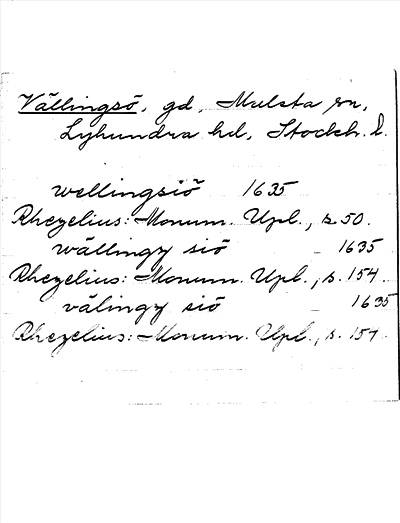 Vällingsö, gd, Malsta sn,
Lyhundra hd, Stockh. l.
wellingsiö 1635
Rhezelius: Monum. Upl., s 50.
wällingy siö - 1635
Rhezelius: Monum. Upl., s. 154.
välingy siö - 1635
Rhezelius: Monum. Upl., s. 154.